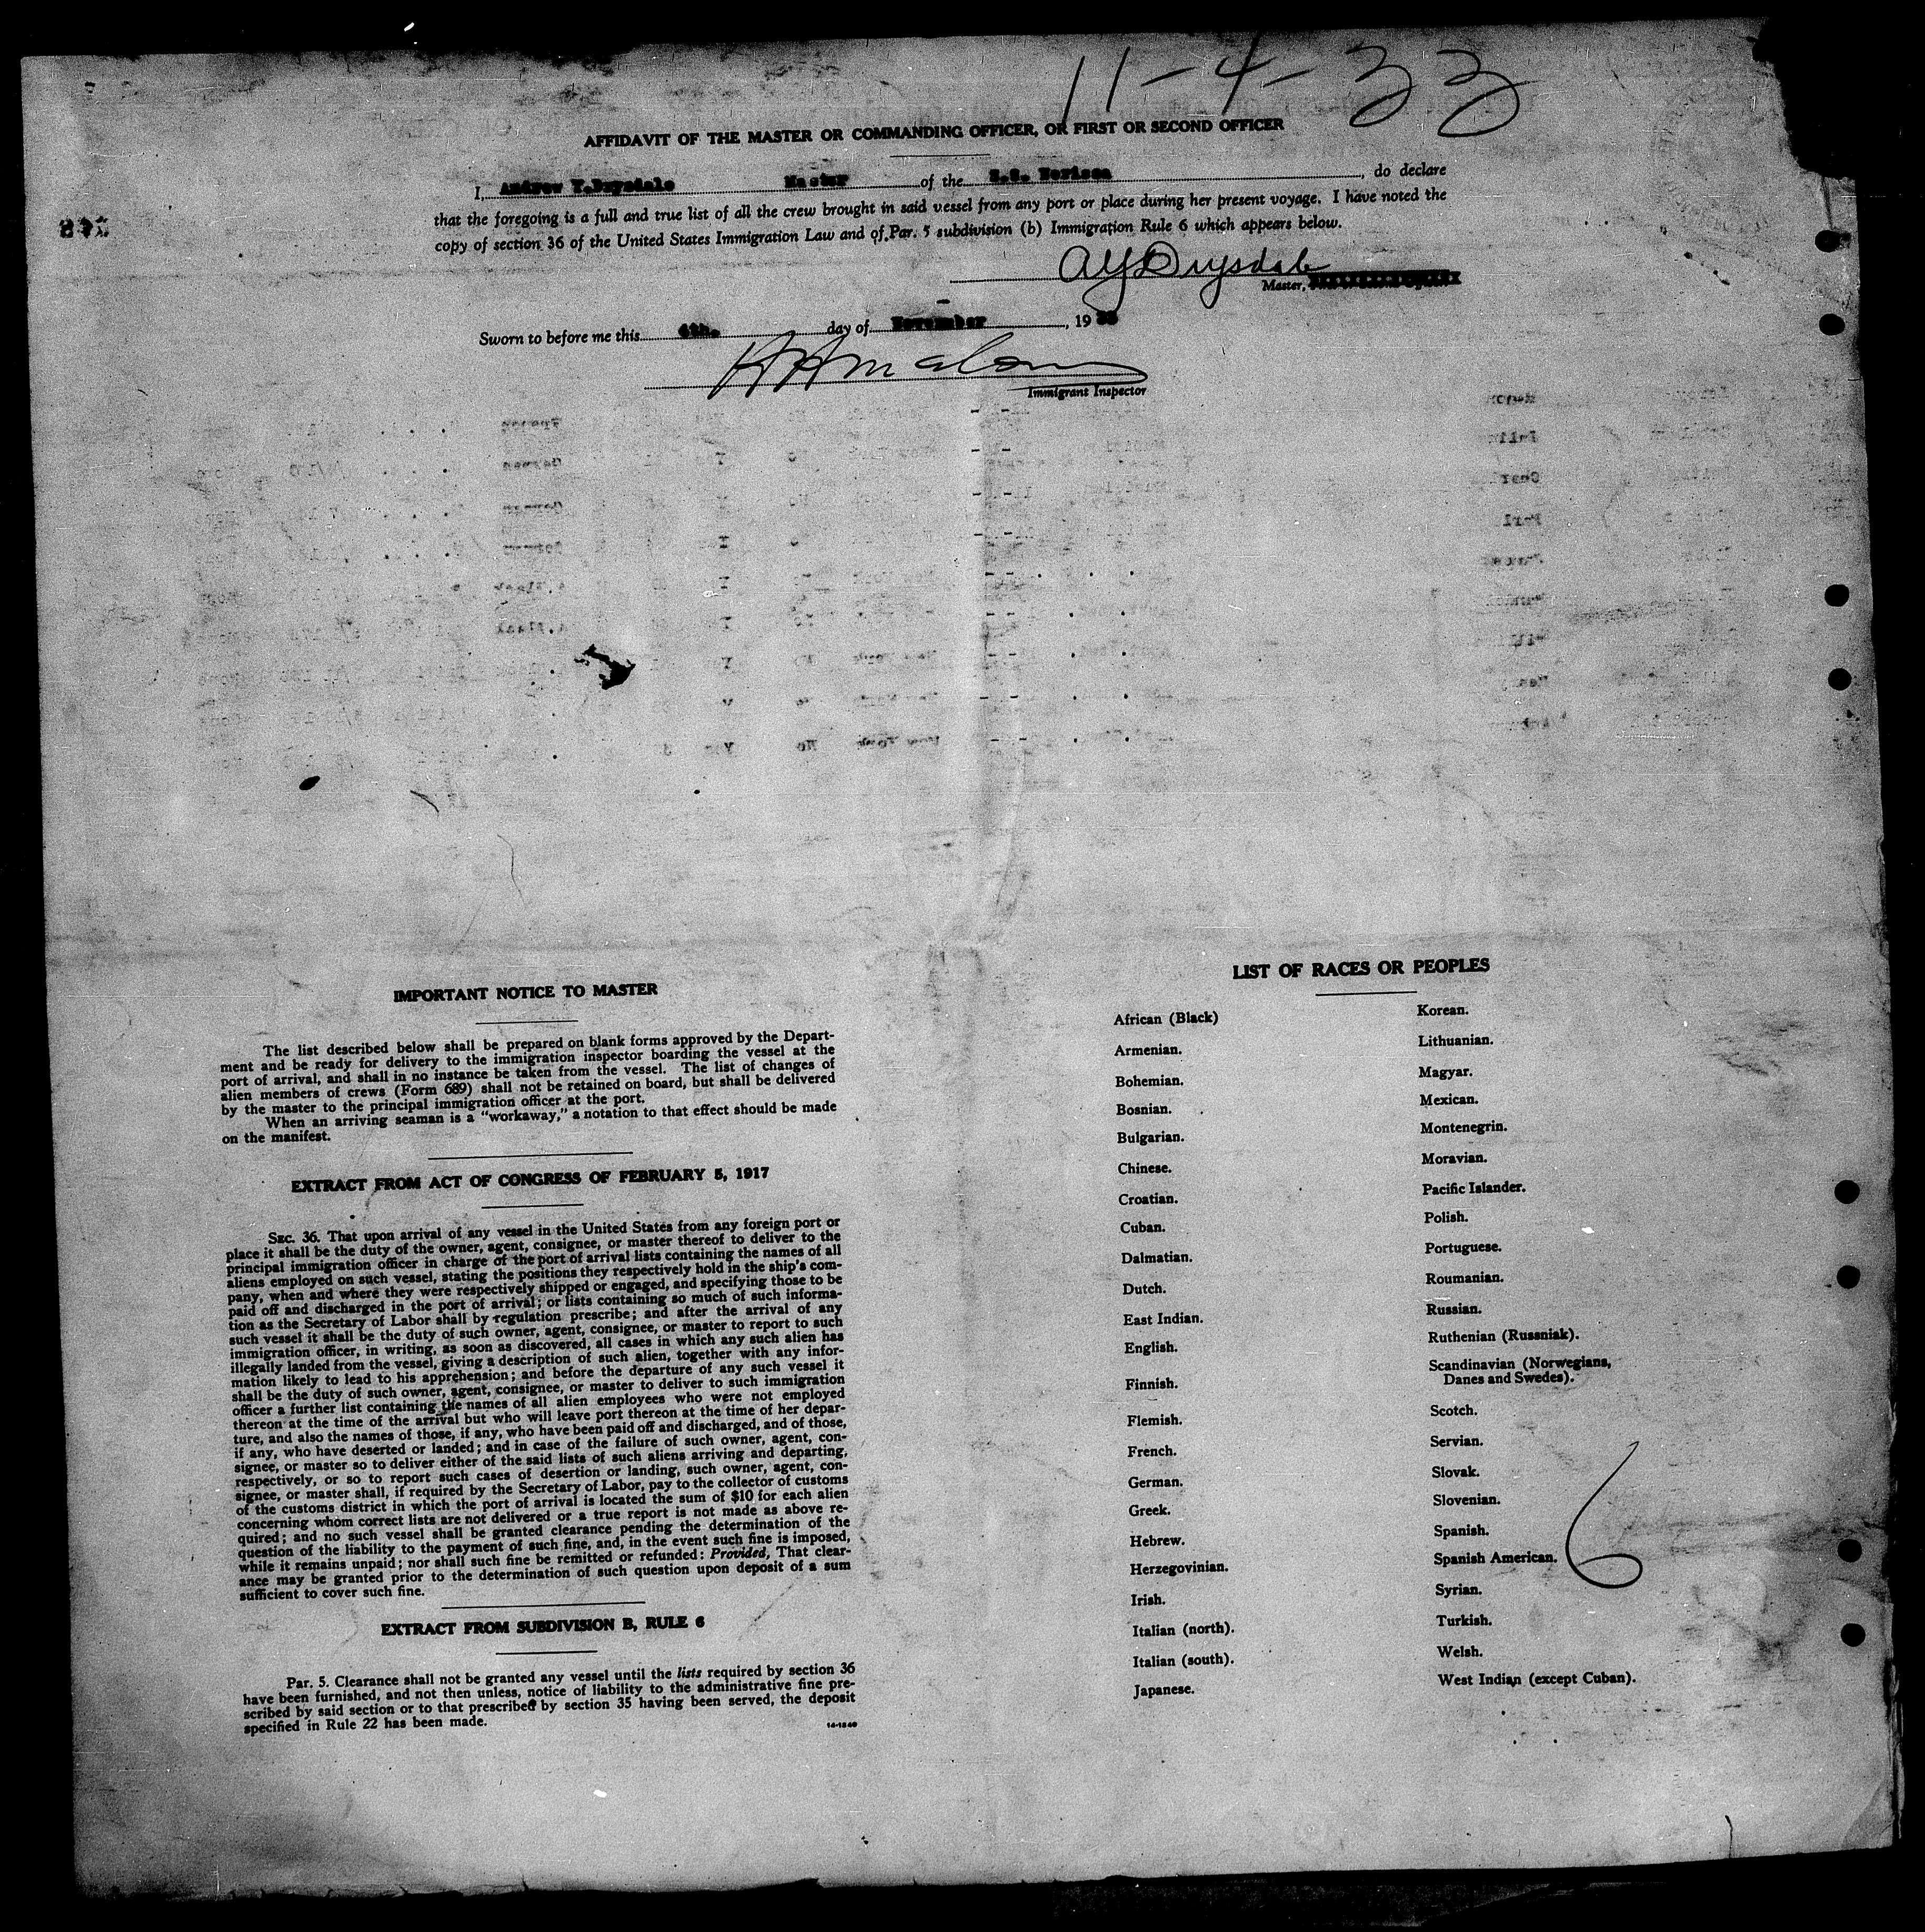 11-4-33
AFFIDAVIT OF THE MASTER OR COMMANDING OFFICER, OR FIRST OR SECOND OFFICER
I, Andrew Y.Drysdale Master of the S.S. Nerissa, do declare
that the foregoing is a full and true list of all the crew brought in said vessel from any port or place during her present voyage. I have noted the
copy of section 36 of the United States Immigration Law and of Par. 5 subdivision (b) Immigration Rule 6 which appears below.
AYDrysdale
Master,
Sworn to before me this 4th. day of November, 1933
Immigrant Inspector
IMPORTANT NOTICE TO MASTER
The list described below shall be prepared on blank forms approved by the Depart-
ment and be ready for delivery to the immigration inspector boarding the vessel at the
port of arrival, and shall in no instance be taken from the vessel. The list of changes of
alien members of crews (Form 689) shall not be retained on board, but shall be delivered
by the master to the principal immigration officer at the port.
When an arriving seaman is a “workaway,” a notation to that effect should be made
on the manifest.
EXTRACT FROM ACT OF CONGRESS OF FEBRUARY 5, 1917
SEC. 36. That upon arrival of any vessel in the United States from any foreign port or
place it shall be the duty of the owner, agent, consignee, or master thereof to deliver to the
principal immigration officer in charge of the port of arrival lists containing the names of all
aliens employed on such vessel, stating the positions they respectively hold in the ship's com-
pany, when and where they were respectively shipped or engaged, and specifying those to be
paid off and discharged in the port of arrival; or lists containing so much of such informa-
tion as the Secretary of Labor shall by regulation prescribe; and after the arrival of any
such vessel it shall be the duty of such owner, agent, consignee, or master to report to such
immigration officer, in writing, as soon as discovered, all cases in which any such alien has
illegally landed from the vessel, giving a description of such alien, together with any infor-
mation likely to lead to his apprehension; and before the departure of any such vessel it
shall be the duty of such owner, agent, consignee, or master to deliver to such immigration
officer a further list containing the names of all alien employees who were not employed
thereon at the time of the arrival but who will leave port thereon at the time of her depar-
ture, and also the names of those, if any, who have been paid off and discharged, and of those,
if any, who have deserted or landed; and in case of the failure of such owner, agent, con-
signee, or master so to deliver either of the said lists of such aliens arriving and departing,
respectively, or so to report such cases of desertion or landing, such owner, agent, con-
signee, or master shall, if required by the Secretary of Labor, pay to the collector of customs
of the customs district in which the port of arrival is located the sum of $10 for each alien
concerning whom correct lists are not delivered or a true report is not made as above re-
quired; and no such vessel shall be granted clearance pending the determination of the
question of the liability to the payment of such fine, and, in the event such fine is imposed,
while it remains unpaid; nor shall such fine be remitted or refunded: Provided, That clear-
ance may be granted prior to the determination of such question upon deposit of a sum
sufficient to cover such fine.
EXTRACT FROM SUBDIVISION B, RULE 6
Par. 5. Clearance shall not be granted any vessel until the lists required by section 36
have been furnished, and not then unless, notice of liability to the administrative fine pre-
scribed by said section or to that prescribed by section 35 having been served, the deposit
specified in Rule 22 has been made.
14-1240
LIST OF RACES OR PEOPLES
African (Black)
Armenian.
Bohemian.
Bosnian.
Bulgarian.
Chinese.
Croatian.
Cuban.
Dalmatian.
Dutch.
East Indian.
English.
Finnish.
Flemish.
French.
German.
Greek.
Hebrew.
Herzegovinian.
Irish.
Italian (north).
Italian (south).
Japanese.
Korean.
Lithuanian.
Magyar.
Mexican.
Montenegrin.
Moravian.
Pacific Islander.
Polish.
Portuguese.
Roumanian.
Russian.
Ruthenian (Russniak).
Scandinavian (Norwegians,
Danes and Swedes).
Scotch.
Servian.
Slovak.
Slovenian.
Spanish.
Spanish American.
Syrian.
Turkish.
Welsh.
West Indian (except Cuban).
6